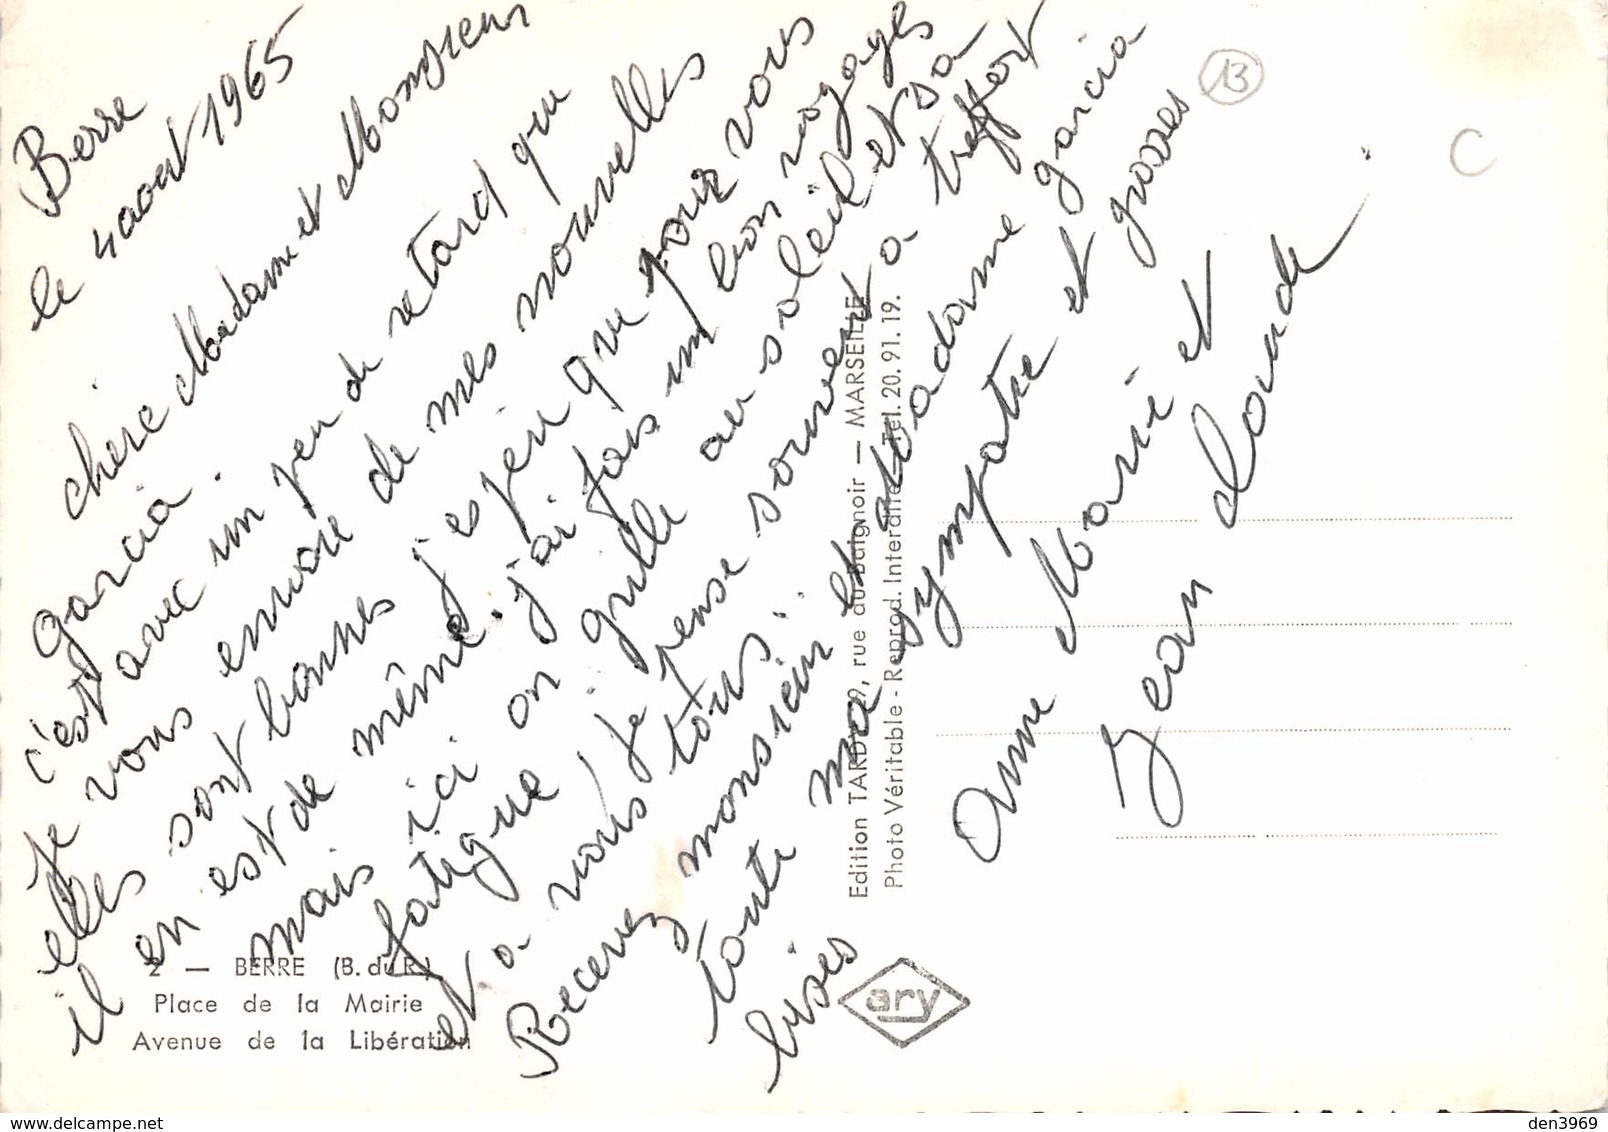 Berre
le 4 aout 1965
chère Madame et Monsieur
garcia.
c'est avec un peu de retard que
je vous envoie de mes nouvelles
elles sont bonnes j'espère que pour vous
il en est de même. j'ai fais un bon voyages
mais ici on grille au soleil et sa
fatigue ! Je pense souvent a treffort
et a vous tous.
Recevez monsieur et Madame garcia
toute ma sympatie et grosses
bises
Anne Marie et
Jean Claude.
13
C
2 — BERRE (B. du R.)
Place de la Mairie
Avenue de la Libération
Edition TARDY, rue du Baignoir — MARSEILLE
Photo Véritable - Reprod. Interdite - Tel. 20.91.19.
ary
den3969